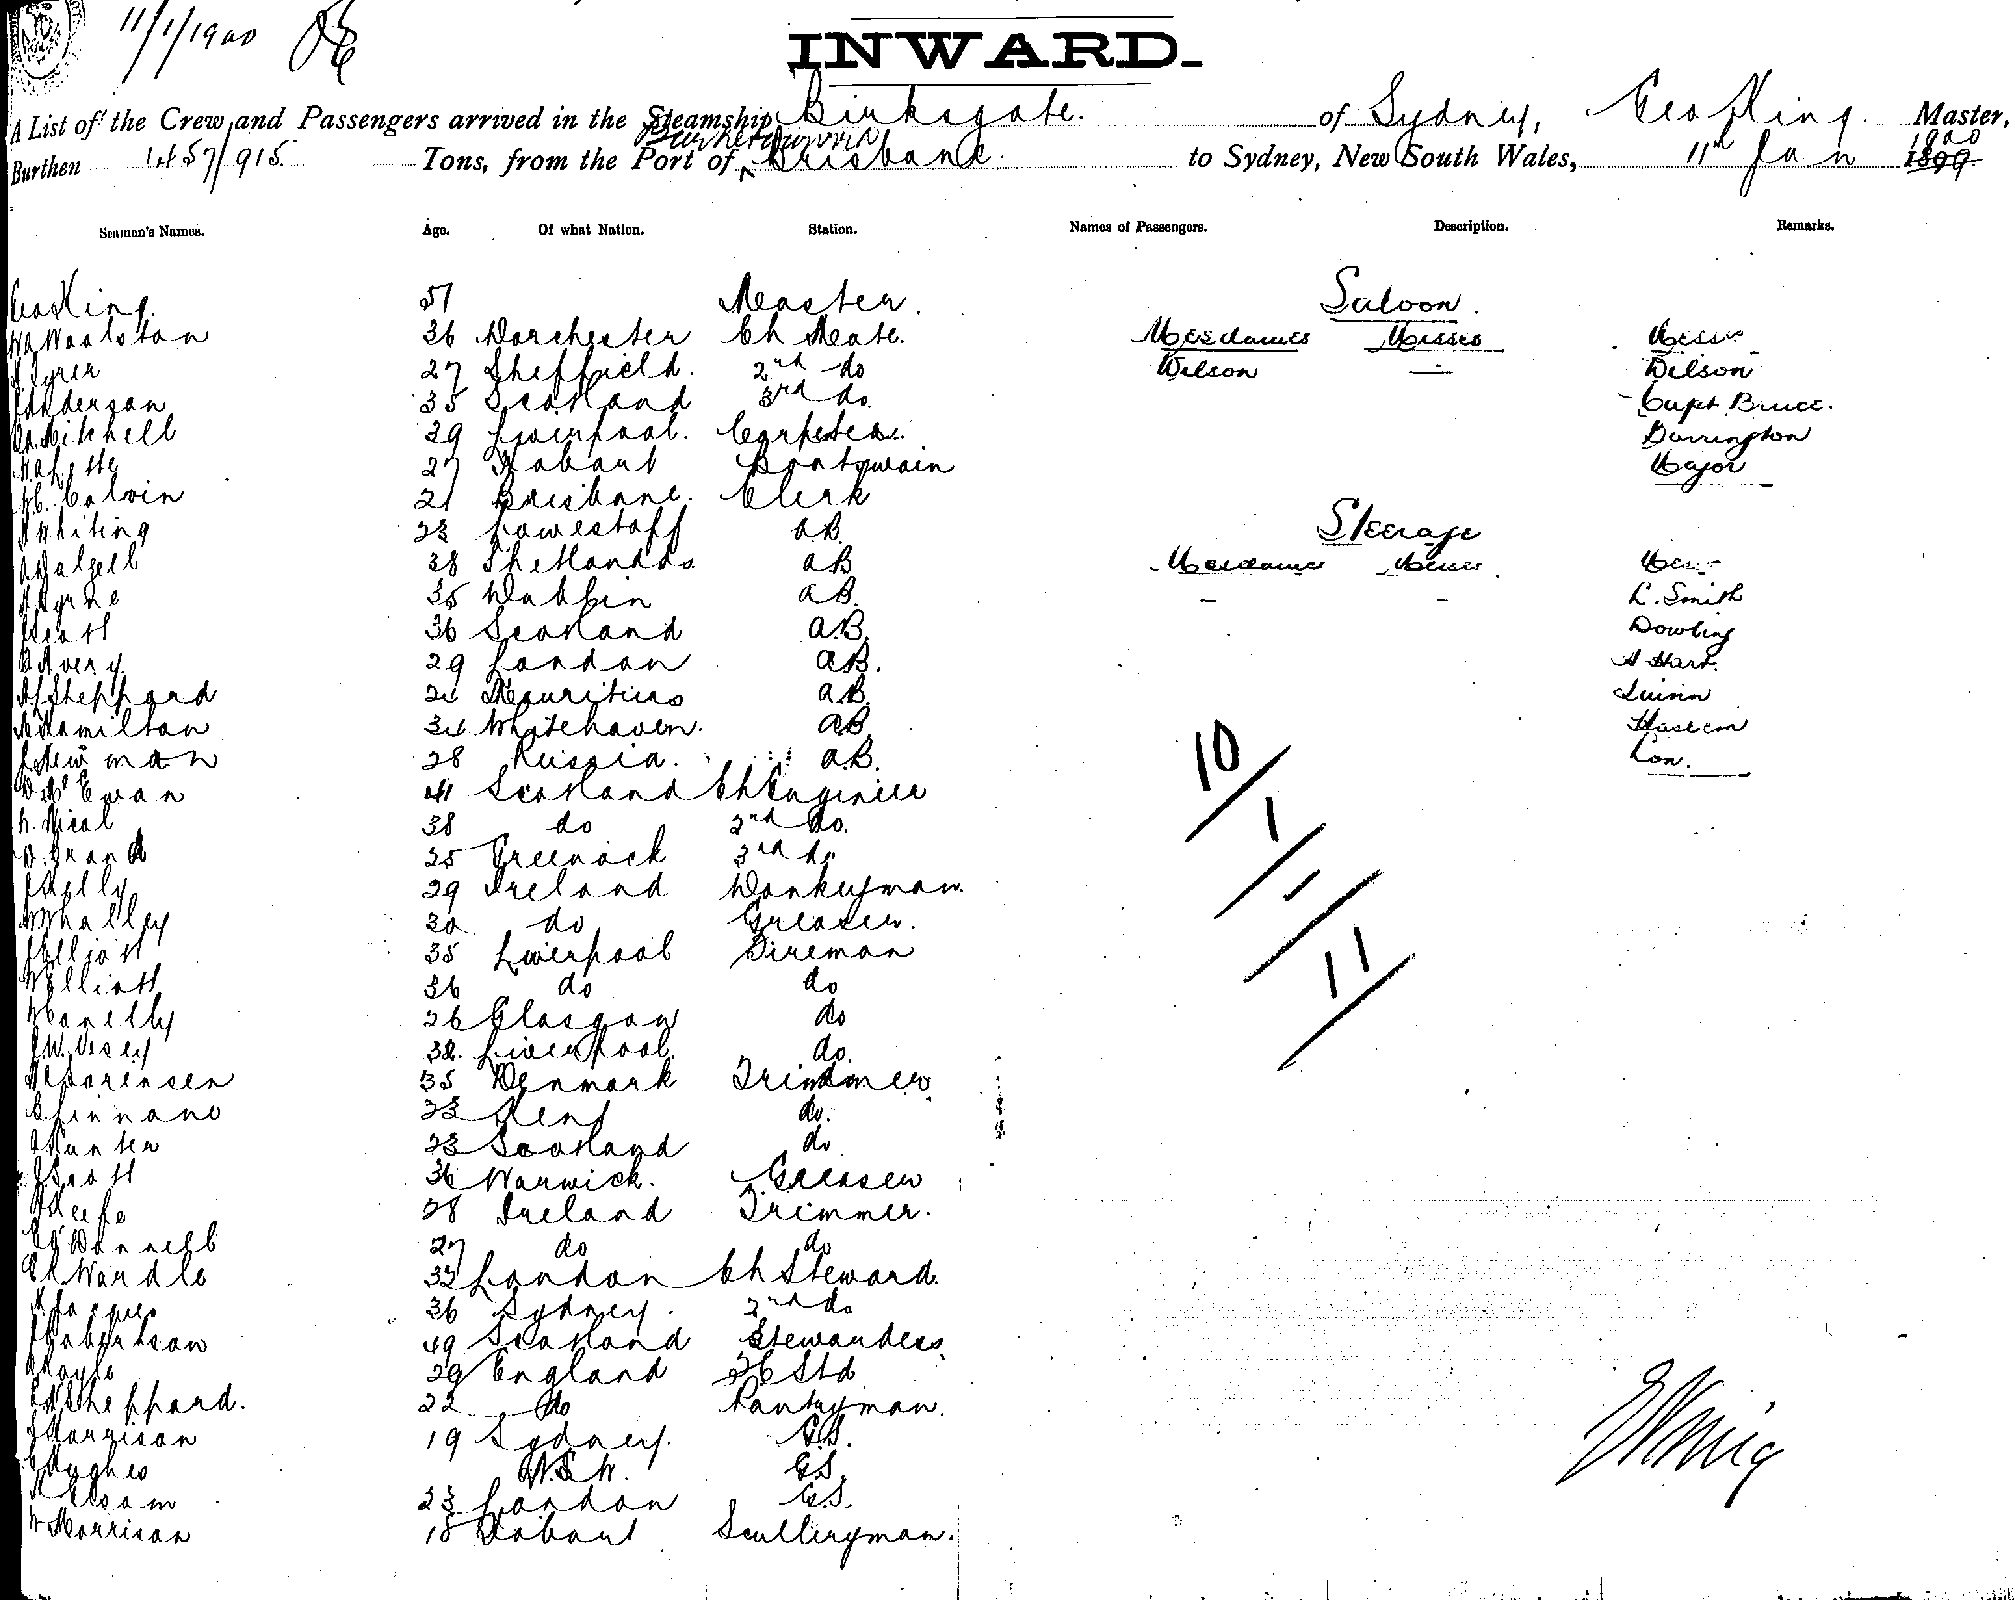 11/1/1900
INWARD.
A List of the Crew and Passengers arrived in the Steamship Birksgate. of Sydney, Geo King. Master,
Burthen 1457/915 Tons, from the Port of Brisbane. to Sydney, New South Wales, 11th Jan 1900 1899
Seamen's Names. Age. Of what Nation. Station. Names of Passengers. Description. Remarks.
Geo King 51 Master. Saloon.
Woolston 36 Dorchester Ch Mate. Mesdames Misses Messrs
27 Sheffield. 2nd do Wilson — Wilson
Anderson 35 Scotland 3rd do Capt Bruce.
Mitchell 29 Liverpool. Carpenter. Darrington
27 Hobart Boatswain Major
Colvin 21 Brisbane. Clerk
Whiting 23 Lowestoff AB. Steerage
Dalzell 38 Shetlands AB Mesdames Misses Messrs
Byrne 35 Dublin AB. - - L. Smith
Scott 36 Scotland AB. Dowling
Avery 29 London AB. A Hart.
Sheppard 24 Mauritius AB Quinn
Hamilton 34 Whitehaven. AB
Newman 28 Russia. AB. Lon.
McEwan 41 Scotland Ch Engineer
Nicol 38 do 2nd do.
Grand 25 Greenock 3rd do
Kelly 29 Ireland Donkeyman.
Whalley 30 do Greaser.
Elliott 35 Liverpool Fireman
Elliott 36 do do
Conelly 26 Glasgow do
32. Liverpool. do.
Sorensen 35 Denmark Trimmer
Linnane 23 Kent do.
Hunter 23 Scotland do
Scott 36 Warwick. Greaser
Keefe 28 Ireland Trimmer.
27 do do
Wardle 33 London Ch Steward.
Jaques 36 Sydney. 2nd do
Robertson 49 Scotland Stewardess
Doyle 29 England 2C Std
Sheppard. 22 do Pantryman.
Morrison 19 Sydney. G.S.
Hughes N.S.W. G.S.
23 London G.S.
W Morrison 18 Hobart Sculleryman.
10/
1/
-/
11/